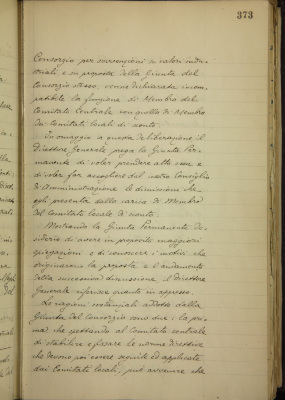 373
Consorzio per sovvenzioni su valori indu-
striali e su proposta della Giunta del
Consorzio stesso, venne dichiarata incom-
patibile la funzione di Membro del
Comitato Centrale con quella di Membro
dei Comitati locali di sconto.
In omaggio a questa deliberazione il
Direttore Generale prega la Giunta Per-
manente di voler prendere atto come e
di voler far accogliere dal vostro Consiglio
di Amministrazione le dimissioni che
egli presenta dalla carica di Membro
del Comitato locale di sconto.
Mostrando la Giunta Permanente de-
siderio di avere in proposito maggiori
spiegazioni e di conoscere i motivi che
originarono la proposta e l'andamento
della successiva discussione, il Direttore
Generale riferisce quanto in appresso.
Le ragioni sostanziali addotte dalla
Giunta del Consorzio sono due: la pri-
ma: che spettando al Comitato centrale
di stabilire e fissare le norme direttive
che devono poi essere seguite ed applicate
dai Comitati locali, può avvenire che